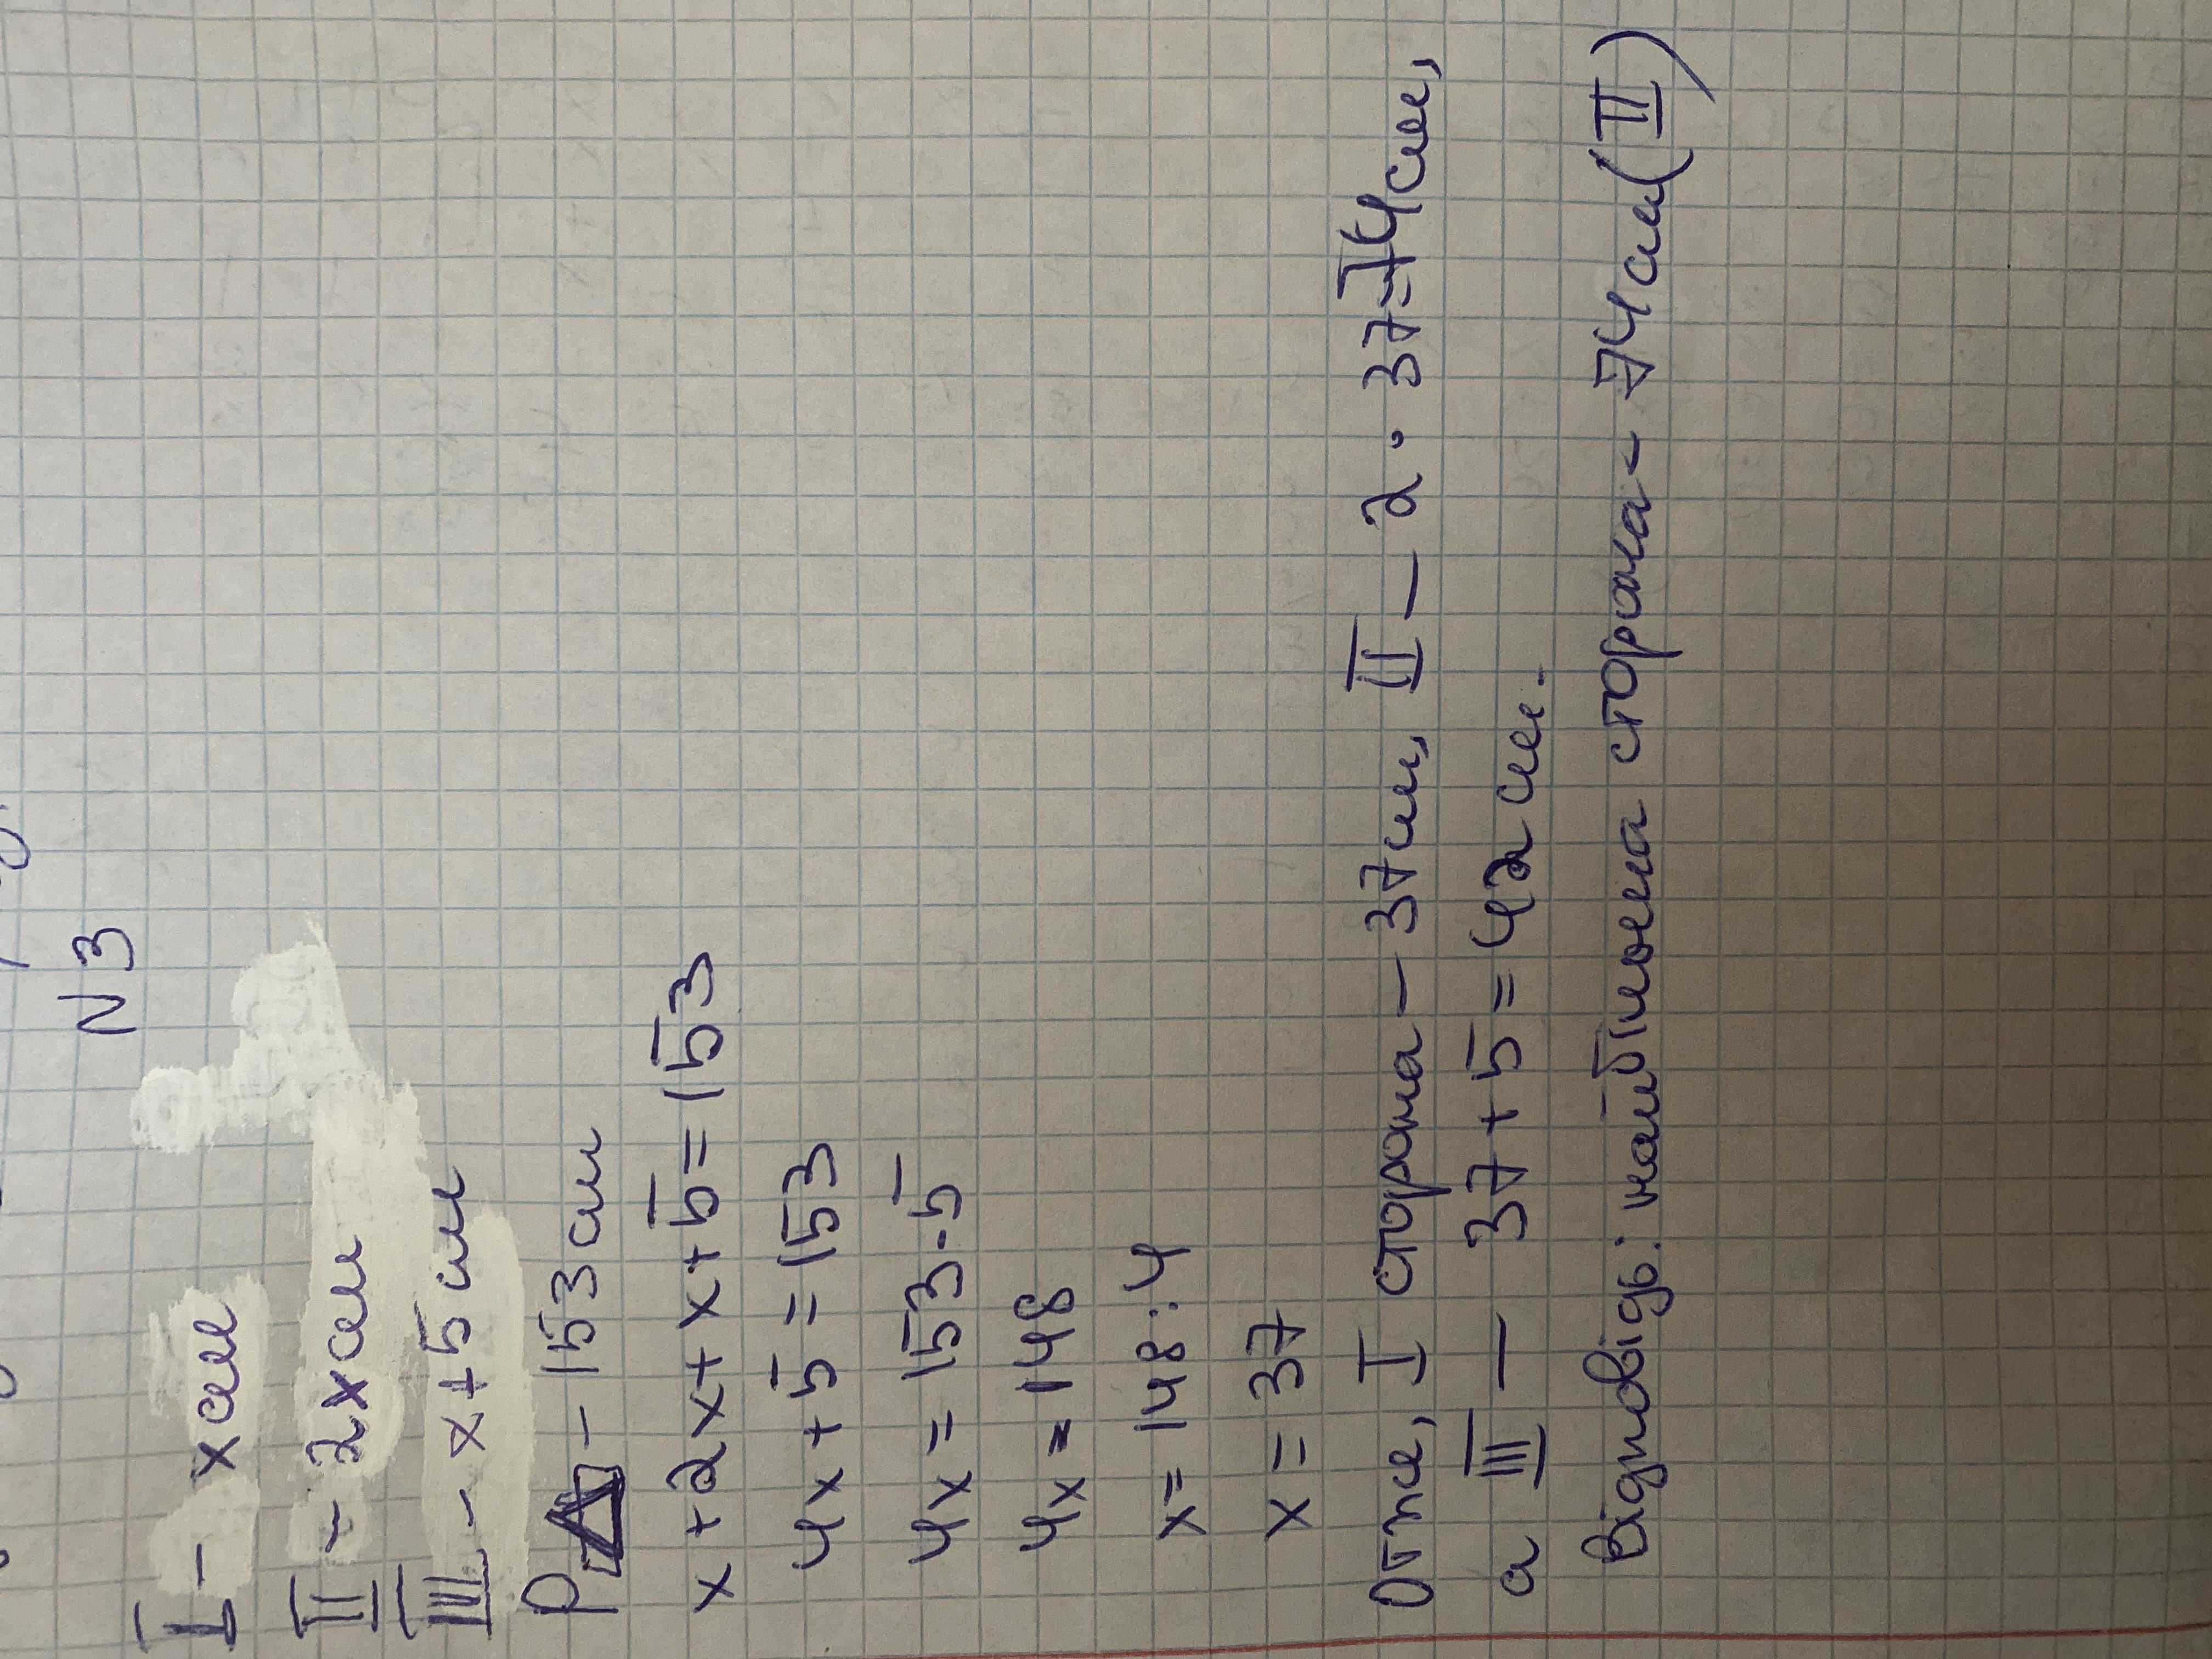 N3
I - xсм
II - 2xсм
III - x+5см
P△ - 153см
x+2x+x+5=153
4x+5=153
4x=153-5
4x=148
x=148:4
x=37
Отже, I сторона - 37см, II - 2·37=74см,
а III - 37+5=42см.
Відповідь: найбільша сторона - 74см(II)